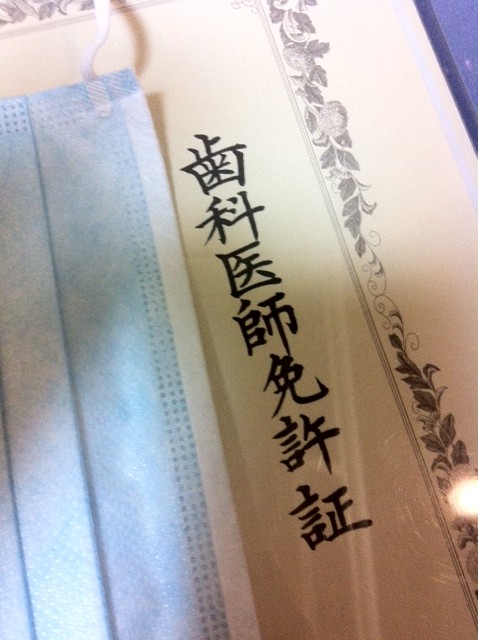 歯科医師免許証